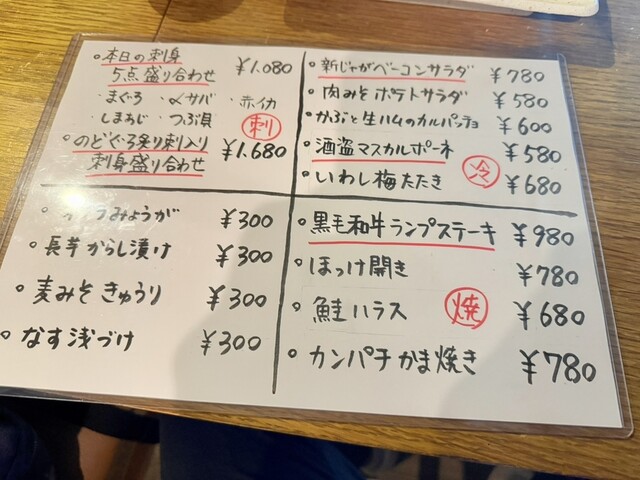 本日の刺身
5点盛り合わせ ¥1.080
・まぐろ ・〆サバ ・赤イカ
・しまあじ ・つぶ貝
刺
のどぐろ炙り刺入り
刺身盛り合わせ ¥1.680
新じゃがベーコンサラダ ¥780
肉みそポテトサラダ ¥580
かぶと生ハムのカルパッチョ ¥600
酒盗マスカルポーネ ¥580
冷
いわし梅たたき ¥680
みょうが ¥300
長芋からし漬け ¥300
麦みそきゅうり ¥300
なす浅づけ ¥300
黒毛和牛ランプステーキ ¥980
ほっけ開き ¥780
鮭ハラス ¥680
焼
カンパチかま焼き ¥780